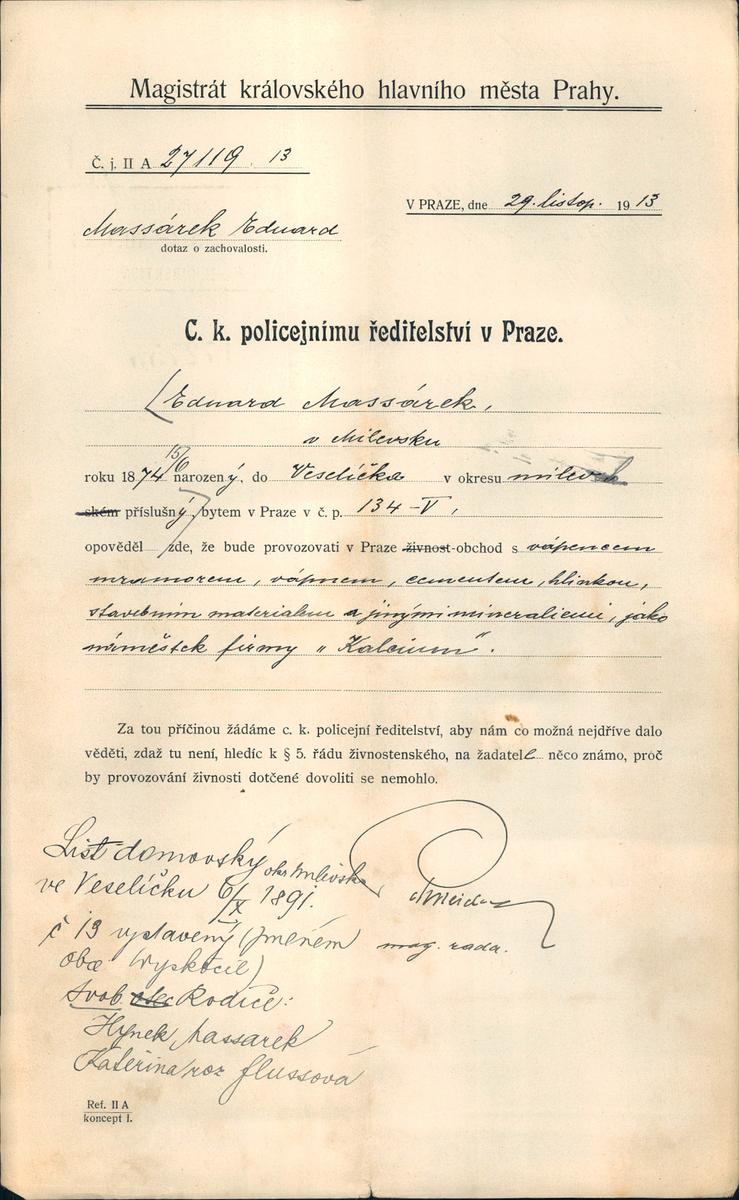 Magistrát královského hlavního města Prahy.
Č. j. II A 27119. 13
V PRAZE, dne 29. listop. 1913
Massárek Eduard
dotaz o zachovalosti.
C. k. policejnímu ředitelství v Praze.
Eduard Massárek,
v Milevsku
roku 1874 15/6 narozený, do Veselíčka v okresu milev
ském příslušný, bytem v Praze v č. p. 134-V,
opověděl zde, že bude provozovati v Praze živnost-obchod s vápencem
mramorem, vápnem, cementem, hlinkou,
stavebním materialem a jinými mineraliemi, jako
náměstek firmy „Kalcium".
Za tou příčinou žádáme c. k. policejní ředitelství, aby nám co možná nejdříve dalo
věděti, zdaž tu není, hledíc k § 5. řádu živnostenského, na žadatele něco známo, proč
by provozování živnosti dotčené dovoliti se nemohlo.
List domovský
ve Veselíčku okr. Milevsko 6/X 1891.
č 13 vystavený (jménem
obce Vyskočil)
svob. otec Rodiče:
Hynek Massarek
Kateřina roz Flussová
mag. rada.
Ref. II A
koncept I.